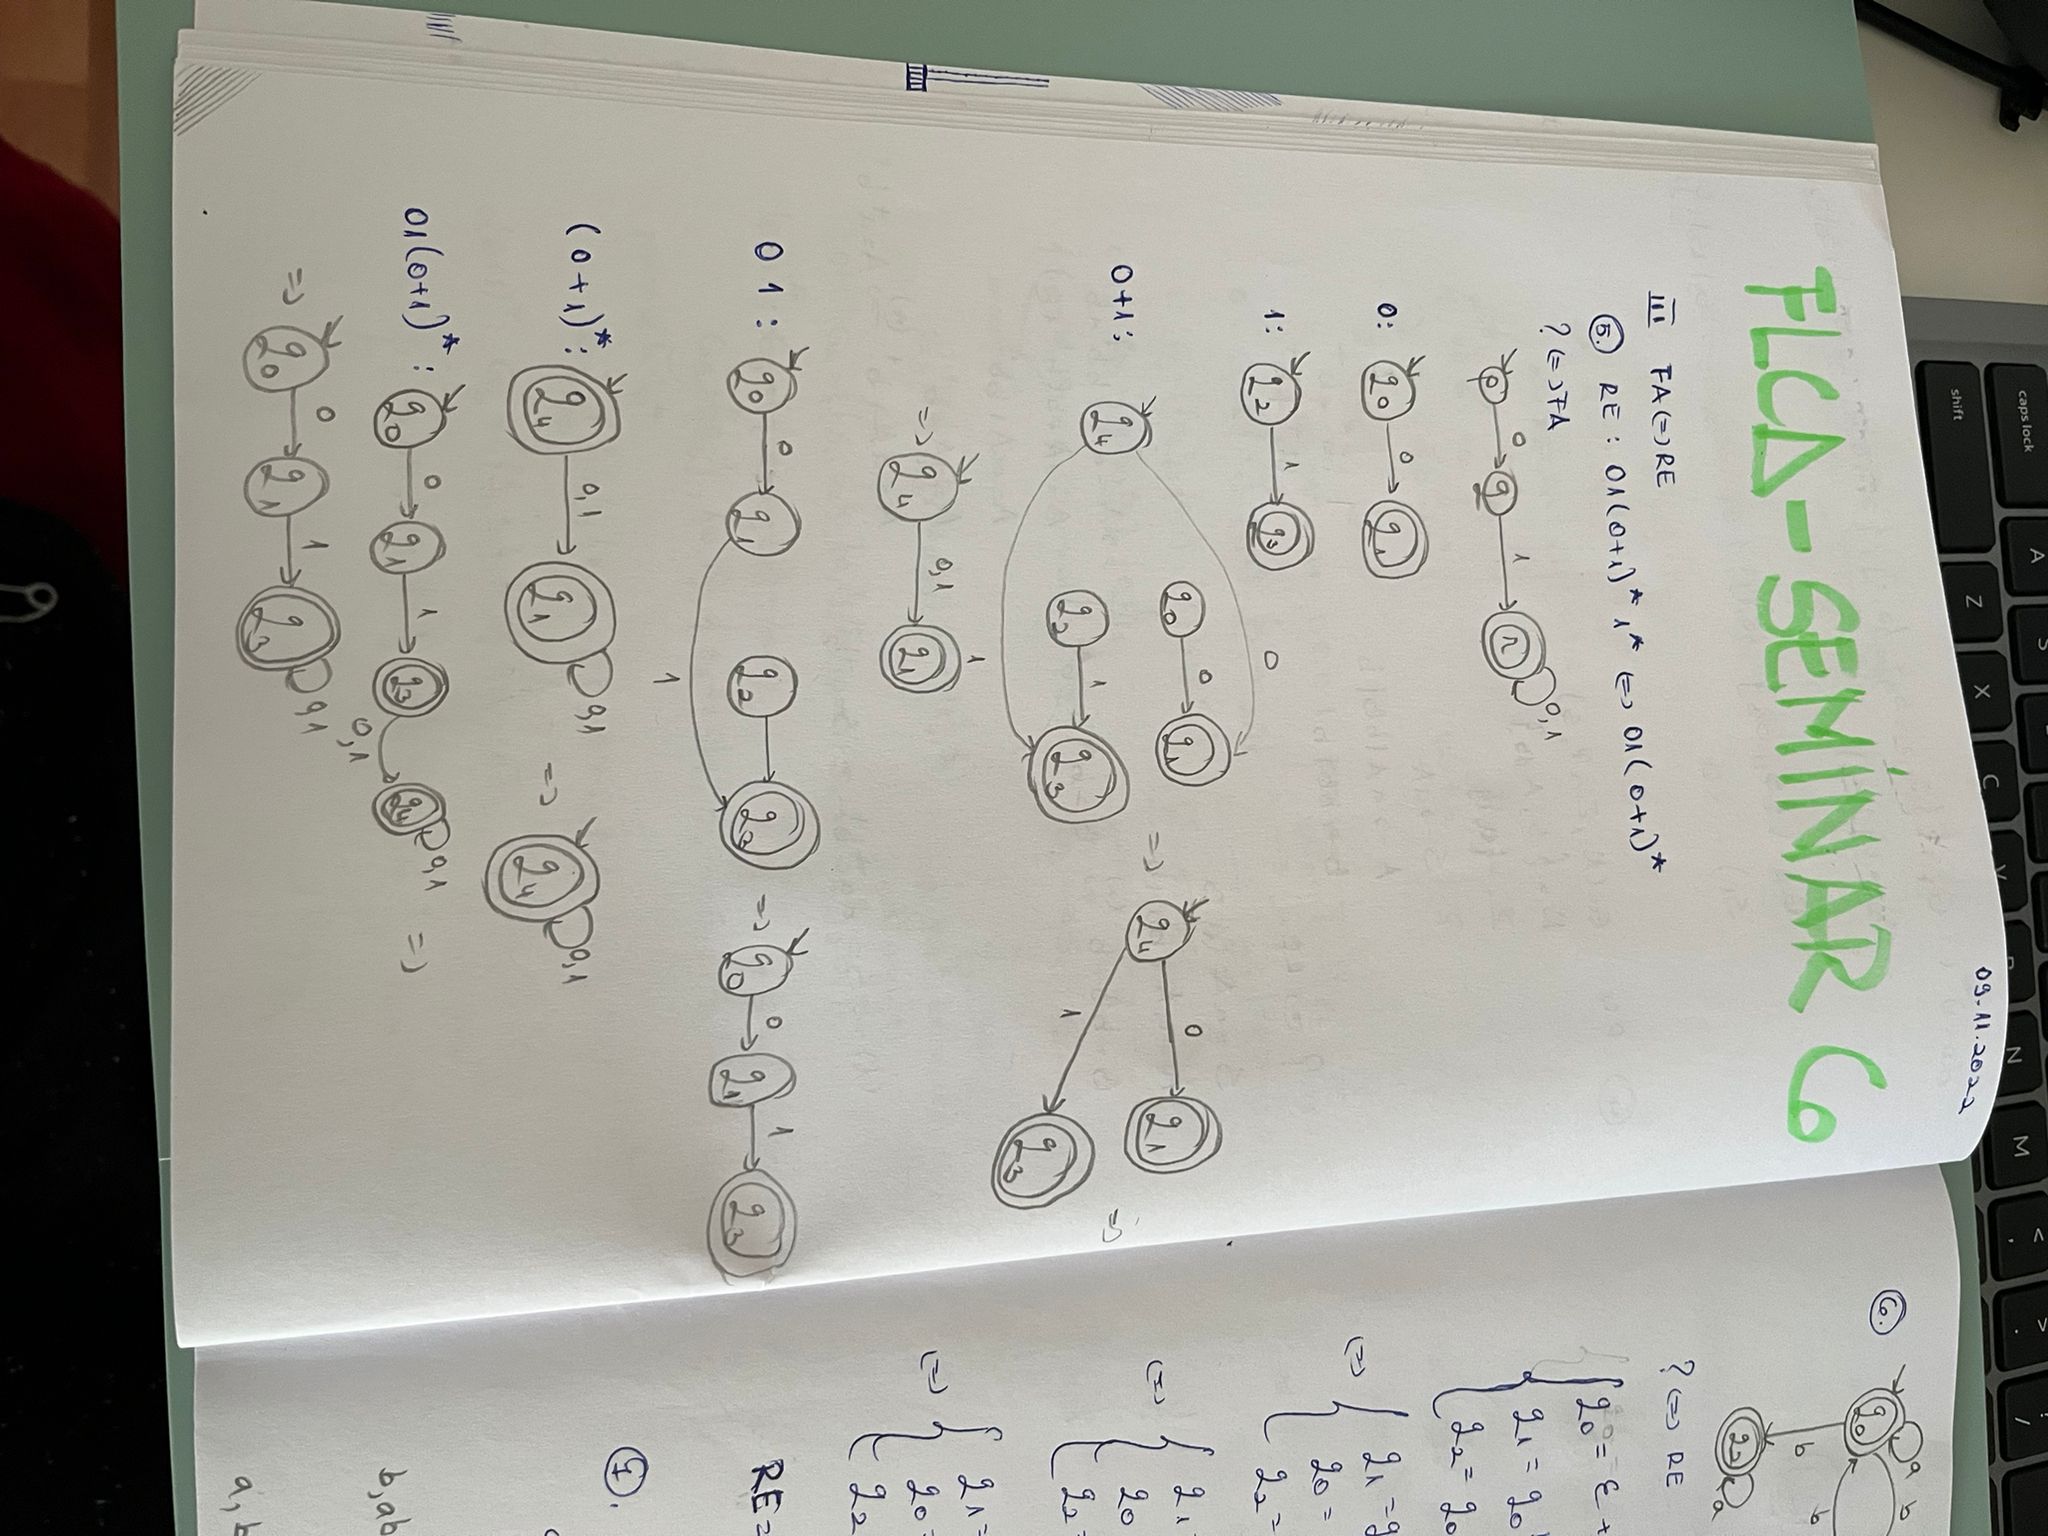 caps lock
A
S
<
,
>
.
?
/
shift
Z
X
C
V
B
N
M
09.11.2022
FLCA-SEMINAR 6
III FA<=>RE
5. RE: 01(0+1)*1* <=> 01(0+1)*
? <=> FA
p 0 q 1 r 0,1
0: q0 0 q1
1: q2 1 q3
0
q0 0 q1
0+1: q4
q2 1 q3
1
=> q4 0 q1
1 q3 =>
=> q4 0,1 q1
0 1: q0 0 q1 q2 q3 => q0 0 q1 1 q3
1
(0+1)*: q4 0,1 q1 0,1 => q4 0,1
01(0+1)*: q0 0 q1 1 q3 0,1 q4 0,1 =>
=> q0 0 q1 1 q3 0,1
6.
q0 a b
b b
q2 a
? <=> RE
q0 = ε +
q1 = q0
q2 = q0
<=> q1 =
q0 =
q2 =
<=> q1
q0
q2 =
<=> q1 =
q0 =
q2
RE =
7.
b, ab
a, b